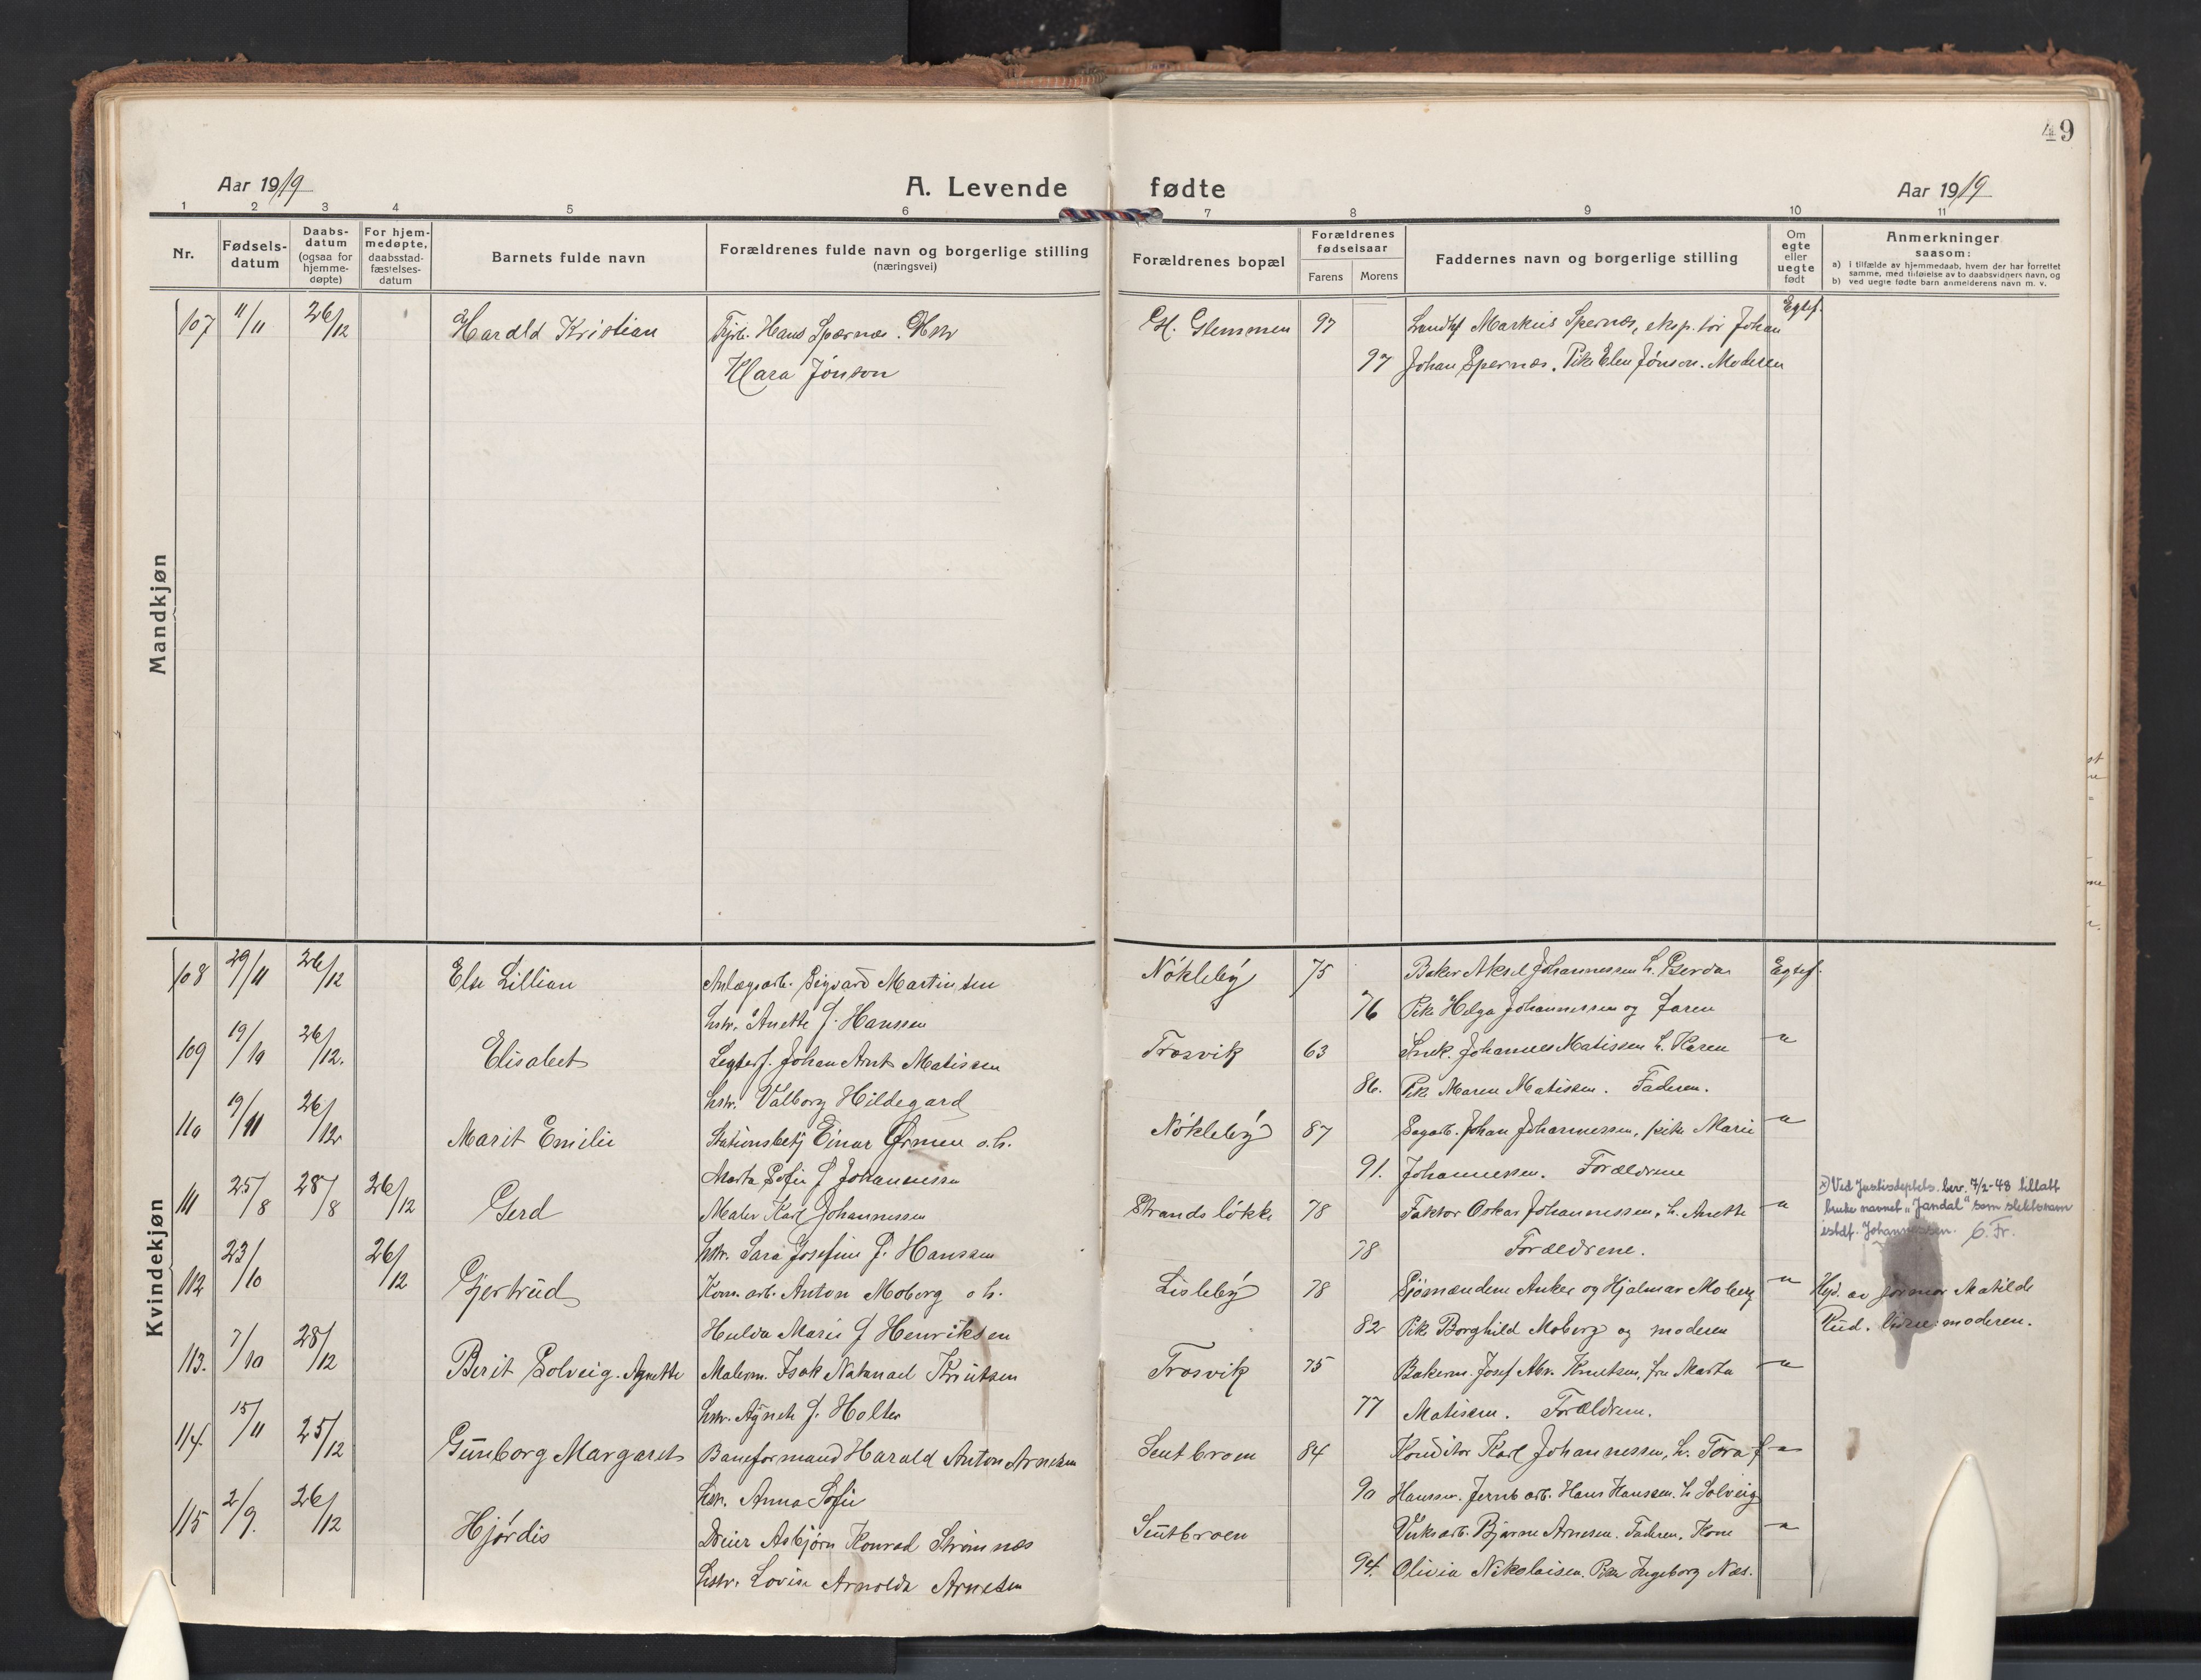 49
Aar 1919
A. Levende fødte
Aar 1919
1 2 3 4 5 6 7 8 9 10 11
Nr.
Fødsels-
datum
Daabs-
datum
(ogsaa for
hjemme-
døpte)
For hjem-
medøpte,
daabsstad-
fæstelses-
datum
Barnets fulde navn
Forældrenes fulde navn og borgerlige stilling
(næringsvei)
Forældrenes bopæl
Forældrenes
fødselsaar
Farens Morens
Faddernes navn og borgerlige stilling
Om
egte
eller
uegte
født
Anmerkninger
saasom:
a) I tilfælde av hjemmedaab, hvem der har forrettet
samme, med tilføielse av to daabsvidners navn, og
b) ved uegte fødte barn anmelderens navn m. v.
Mandkjøn
107 11/11 26/12 Harald Kristian Fyrb. Hans Spernæs. Hstr Gl. Glemmen 97 Landhf Markus Spernæs, eksp. tør Johan Egtef.
Klara Jonson 97 Johan Spernæs. Pike Elen Jónson. Moderen
Kvindekjøn
108 29/11 26/12 Else Lillian Anlægsarb. Sigvard Martinsen Nökleby 75 Baker Aksel Johannessen h. Gerda Egtef.
hstr. Anette f. Hanssen 76 Pike Helga Johannessen og faren
109 19/10 26/12. Elisabet Johan Arnt Matissen Trosvik 63 Snek. Johannes Matissen h. Karen "
hstr. Valborg Hildegard 86. Pike Maren Matissen. Faderen.
110 19/11 26/12 Marit Emilie Stationsbetj Einar Ørmen o.h. Nökleby 87 Sagarb. Johan Johannessen, pike Marie "
Marta Sofie f Johannessen 91. Johannessen. Forældrene
111 25/8 28/8 26/12 Gerd Maler Karl Johannessen Strandsløkke 78 Faktor Oskar Johannessen, h. Anette "
x) Ved Justisdeptets. bev. 7/2-48 tillatt
bruke navnet "Jandal" som slektsnavn
istdf. Johannessen. G. Fr.
hstr. Sara Josefine f. Hanssen 78 Forældrene.
112 23/10 26/12 Gjertrud Kom. arb. Anton Moberg o h. Lisleby 78 Sjömændene Anker og Hjalmar Moberg " Hjd. av jormor Matilde
Hulda Marie f Henriksen 82 Pike Borghild Moberg og moderen Rud. moderen.
113. 7/10 28/12 Berit Solveig. Agnette Malerm. Isak Natanael Knutsen Trosvik 75 Bakerm. Josef Abr. Knutsen, fru Marta "
hstr. Agnete f. Holter 77 Matissen. Forældrene.
114. 15/11 25/12 Gunborg Margaret Baneformand Harald Anton Arnesen Sentbroen 84 Konditor Karl Johannessen, h. Tora f "
hstr. Anna Sofie 90 Hanssen. Jernb arb. Hans Hanssen. h Solveig
115 2/9. 26/12 Hjördis Dreier Asbjørn Konrad Strömnæs Sentbroen Verksarb. Bjarne Arnesen. Faderen. Kone "
hstr. Lovise Arnolda Arnesen 94. Olivia Nikolaisen. Pike Ingeborg Næs.